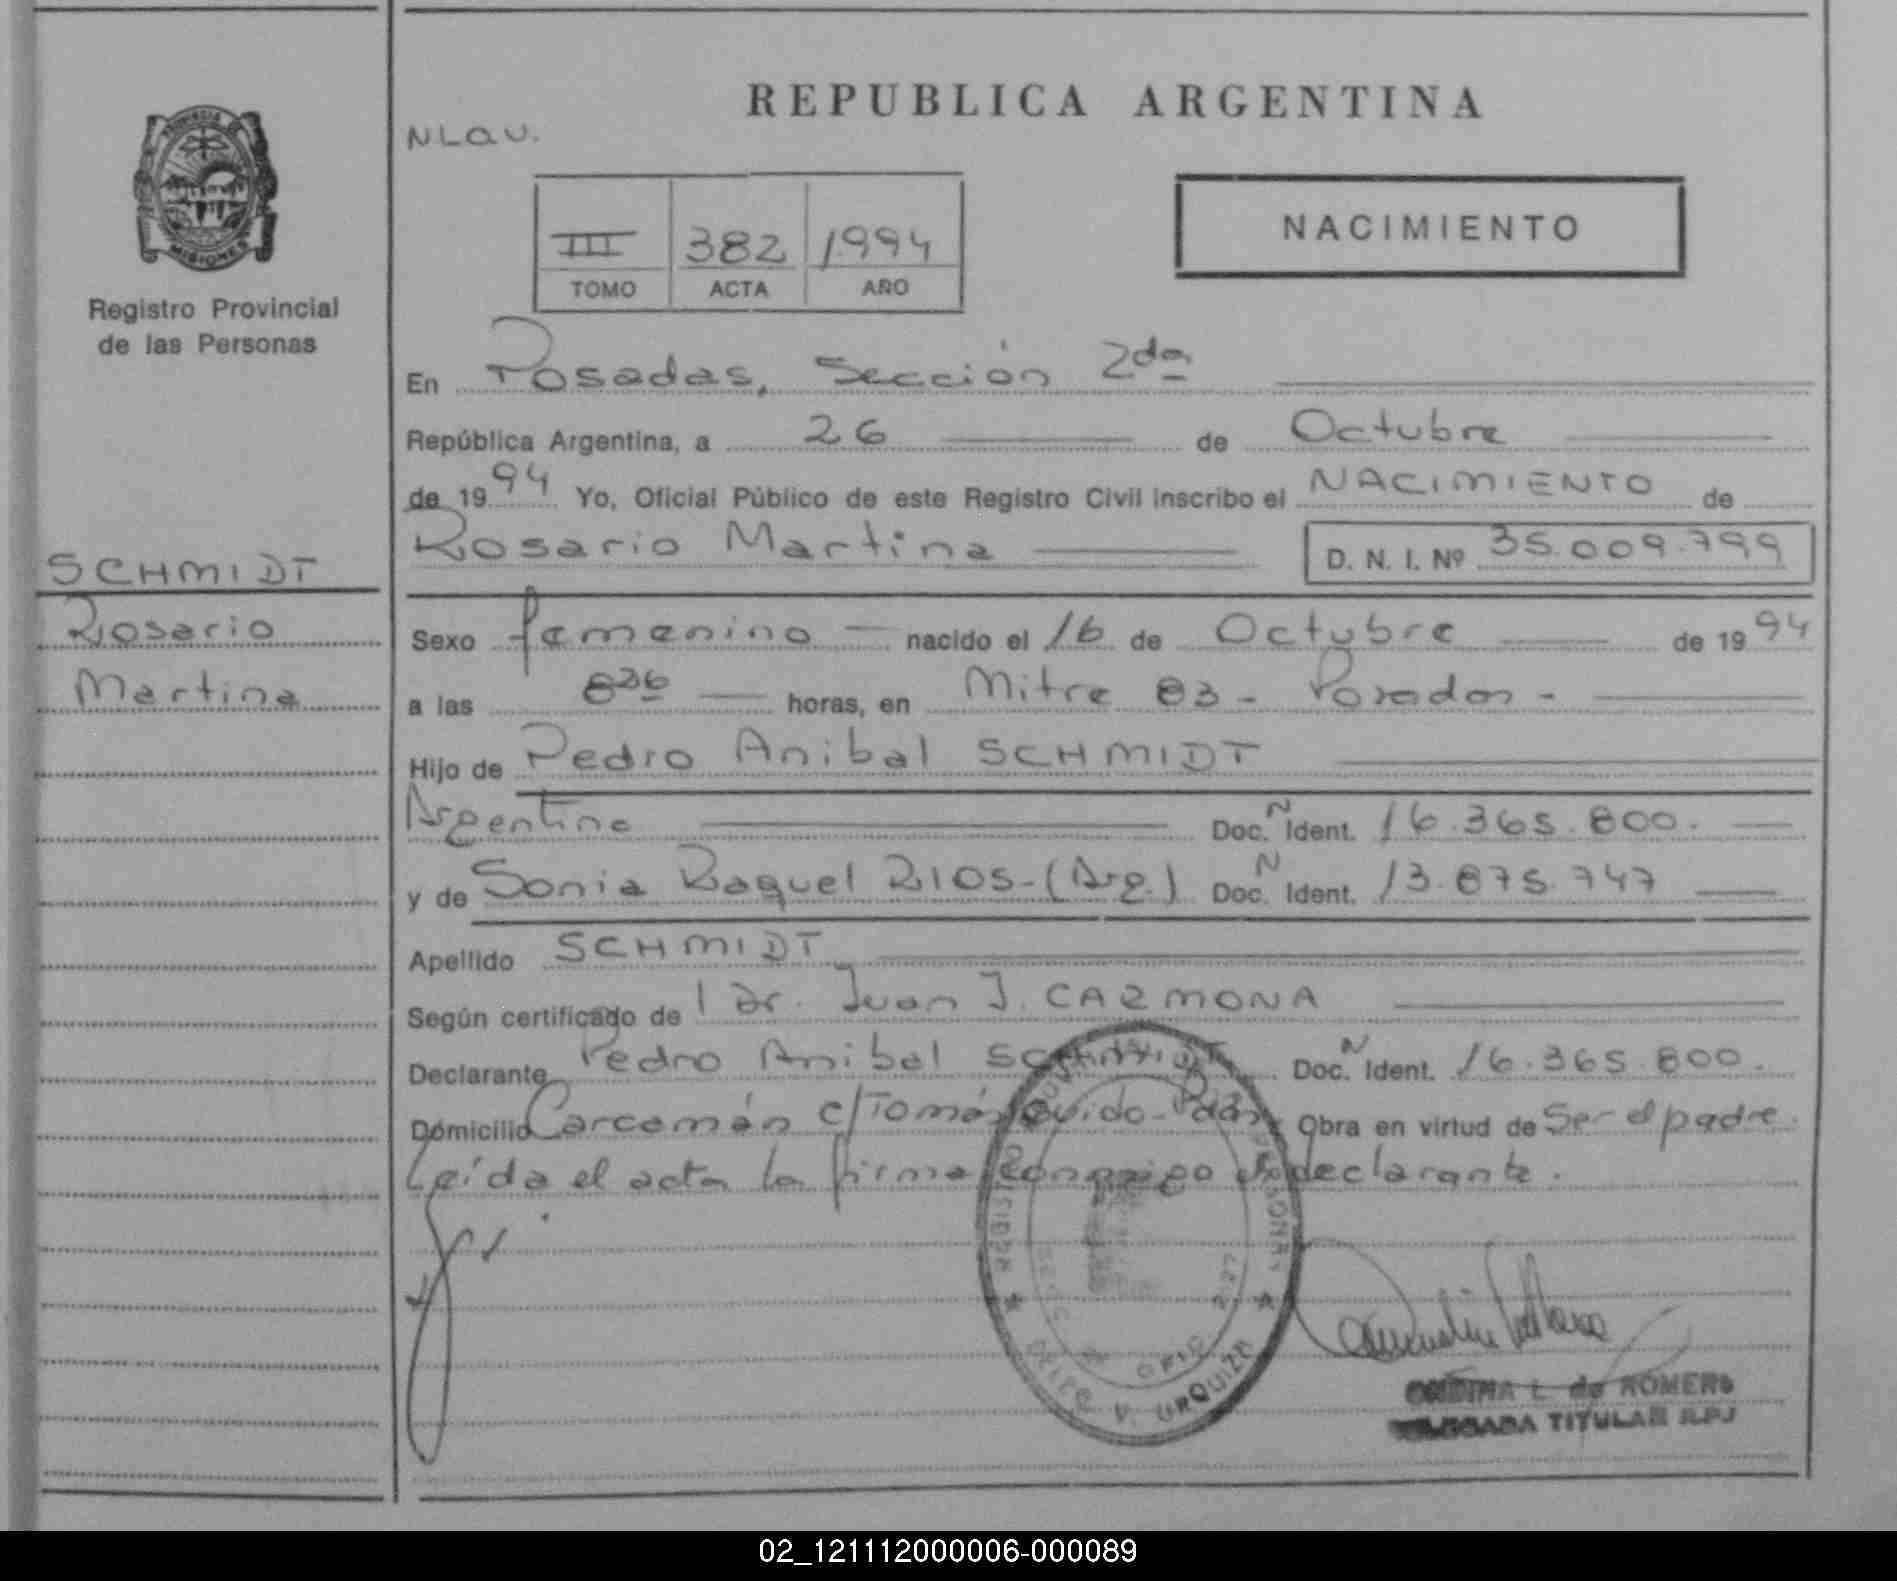 REPUBLICA ARGENTINA
NLQU.
PROVINCIA DE
MISIONES
Registro Provincial
de las Personas
III 382 1.994
TOMO ACTA AÑO
NACIMIENTO
En Posadas, Sección 2da
República Argentina, a 26 de Octubre
de 1994 Yo, Oficial Público de este Registro Civil inscribo el NACIMIENTO de
Rosario Martina D. N. I. Nº 35.009.799
SCHMIDT
Rosario
Martina
Sexo femenino nacido el 16 de Octubre de 1994
a las 836 horas, en Mitre 83 - Posadas -
Hijo de Pedro Anibal SCHMIDT
Argentino Doc. N Ident. 16.365.800.
y de Sonia Raquel RIOS - (Arg.) Doc. N Ident. 13.875.747
Apellido SCHMIDT
Según certificado de l Dr. Juan J. CARMONA
Declarante Pedro Anibal SCHMIDT Doc. N Ident. 16.365.800.
Domicilio Carcamán c/Tomás Guido - Pdas Obra en virtud de Ser el padre.
Leída el acta la firma conmigo el declarante.
REGISTRO PERSONAS
OFIC. 2237
URQUIZA
L. de ROMERO
TITULAR R.P.J
02_121112000006-000089